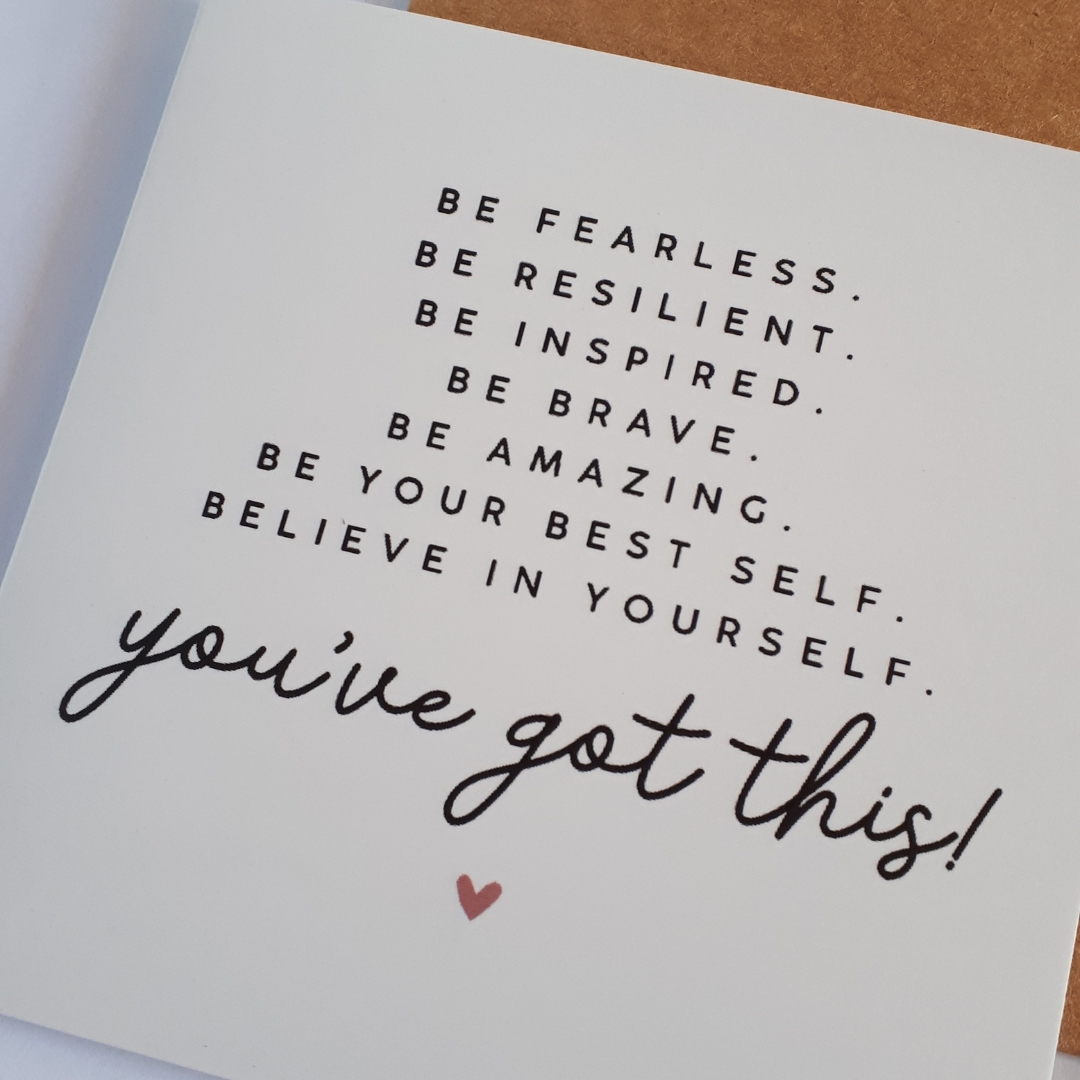 BE FEARLESS.
BE RESILIENT.
BE INSPIRED.
BE BRAVE.
BE AMAZING.
BE YOUR BEST SELF.
BELIEVE IN YOURSELF.
you've got this!